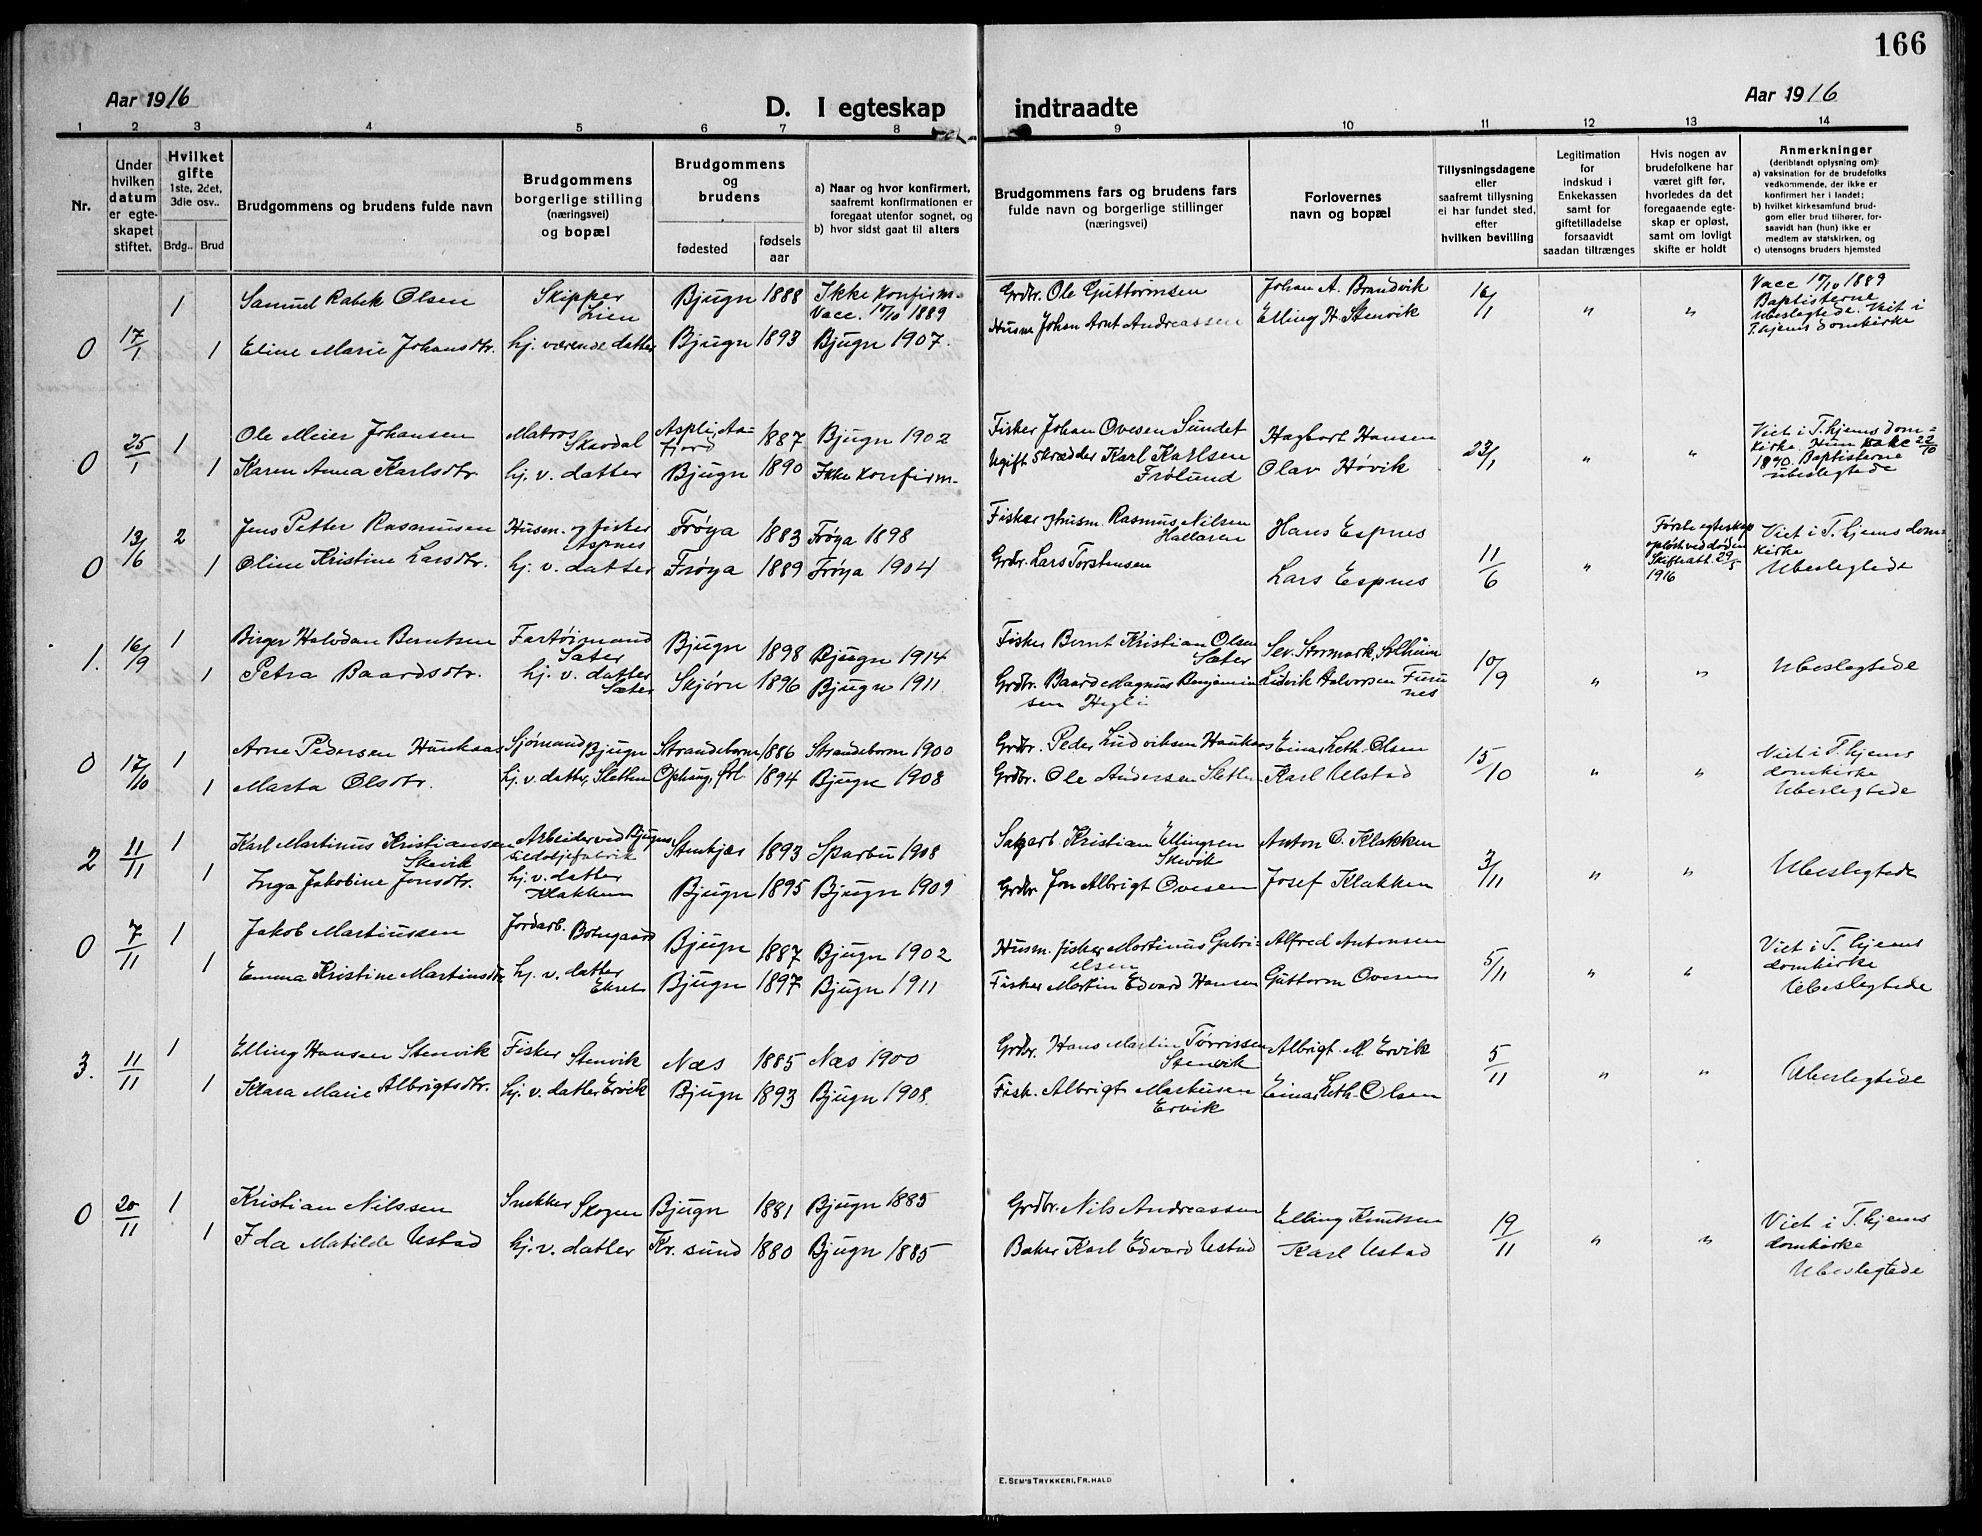 166
Aar 1916
D. I egteskap indtraadte
Aar 1916
1 2 3 4 5 6 7 8 9 10 11 12 13 14
Nr.
Under hvilken datum er egteskapet stiftet.
Hvilket gifte 1ste, 2det, 3die osv..
Brdg.. Brud
Brudgommens og brudens fulde navn
Brudgommens borgerlige stilling (næringsvei) og bopæl
Brudgommens og brudens
fødested
fødsels aar
a) Naar og hvor konfirmert, saafremt konfirmationen er foregaat utenfor sognet, og
b) hvor sidst gaat til alters
Brudgommens fars og brudens fars fulde navn og borgerlige stillinger (næringsvei)
Forlovernes navn og bopæl
Tillysningsdagene eller saafremt tillysning ei har fundet sted, efter hvilken bevilling
Legitimation for indskud i Enkekassen samt for giftetilladelse forsaavidt saadan tiltrænges
Hvis nogen av brudefolkene har været gift før, hvorledes da det foregaaende egteskap er opløst, samt om lovligt skifte er holdt
Anmerkninger (deriblandt oplysning om): a) vaksination for de brudefolks vedkommende, der ikke er konfirmert her i landet; b) hvilket kirkesamfund brudgom eller brud tilhører, forsaavidt han (hun) ikke er medlem av statskirken, og c) utensogns bruders hjemsted
1 Samuel Rabek Olsen Skipper Lien Bjugn 1888 Ikke konfirm. Vacc. 17/10 1889 Grdbr. Ole Guttormsen Johan A. Brandvik 16/1 " " Vacc 17/10 1889 Baptisterne Ubeslegtede. Viet i T.hjems domkirke
0 17/1 1 Eline Marie Johansdtr. hj. værende datter Bjugn 1893 Bjugn 1907. Husm Johan Arnt Andreassen Elling H. Stenvik
25/1 1 Ole Meier Johansen Matros Skavdal Aspli, Aafjord 1887 Bjugn 1902 Fisker Johan Ovesen Sundet Hagbart Hansen 23/1 " " Viet i T.hjems domkirke Hun vakc 22/10 1890. Baptisterne ubeslegtede
0 1 Karen Anna Karlsdtr. hj. v. datter Bjugn 1890 Ikke konfirm. Ugift Skrædder Karl Karlsen Frølund Olav Høvik
13/6 2 Jens Petter Rasmussen Husm. og fisker Aspnes Frøya 1883 Frøya 1898 Fisker og husm. Rasmus Nilsen Hallaren Hans Espnes 11/6 " Første egteskap opløst ved døden Skifteatt. 29/5 1916 Viet i T.hjems domkirke Ubeslegtede
0 1 Oline Kristine Larsdtr. hj. v. datter Frøya 1889 Frøya 1904 Grdbr. Lars Torstensen Lars Espnes
1. 16/9 1 Birger Halvdan Berntsen Fartøimand Sæter Bjugn 1898 Bjugn 1914 Fisker Bernt Kristian Olsen Sæter Sev. Stormark, Solheim 10/9 " " Ubeslegtede
1 Petra Baardsdtr. hj. v. datter Sæter Skjørn 1896 Bjugn 1911. Grdbr. Baard Magnus Benjaminsen Hegli Ludvik Halvorsen Furunes
0 17/10 1 Arne Pedersen Haukaas Sjømand Bjugn Strandebarm 1886 Strandebarm 1900 Grdbr. Peder Ludviksen Haukaas Einar Leth-Olsen 15/10 " " Viet i T.hjems domkirke Ubeslegtede
1 Marta Olsdtr. hj. v. datter, Sletten Ophaug, Ørl 1894 Bjugn 1908 Grdbr. Ole Andersen Sletten Karl Ulstad
2 11/11 1 Karl Martinus Kristiansen Skevik Arbeider ved Bjugns sildoljefabrik Stenkjær 1893 Sparbu 1908 Sagarb. Kristian Ellingsen Skevik Anton O. Klakken 3/11 " " Ubeslegtede
1 Inga Jakobine Jonsdtr. hj. v. datter Klakken Bjugn 1895 Bjugn 1909 Grdbr Jon Albrigt Ovesen Josef Klakken
0 7/11 1 Jakob Martinussen Jordarb. Botngaard Bjugn 1887 Bjugn 1902 Husm. fisker Martinus Gabrielsen Alfred Antonsen 5/11 " " Viet i T.hjems domkirke Ubeslegtede
1 Emma Kristine Martinsdtr hj. v. datter Ekret Bjugn 1897 Bjugn 1911 Fisker Martin Edvard Hansen Guttorm Ovesen
3. 11/11 1 Elling Hansen Stenvik Fisker Stenvik Næs 1885 Næs 1900 Grdbr. Hans Martin Tørrissen Stenvik Albrigt M. Ervik 5/11 " " Ubeslegtede
1 Klara Marie Albrigtsdtr. hj. v. datter Ervik Bjugn 1893 Bjugn 1908. Fisk. Albrigt Martinsen Ervik Einar Leth-Olsen
0 20/11 1 Kristian Nilssen Snekker Skogen Bjugn 1881 Bjugn 1885 Grdbr. Nils Andreassen Elling Knutsen 19/11 " " Viet i T.hjems domkirke Ubeslegtede
1 Ida Matilde Ustad hj. v. datter Kr. sund 1880 Bjugn 1885 Baker Karl Edvard Ustad Karl Ustad
E. SEM'S TRYKKERI, FR.HALD